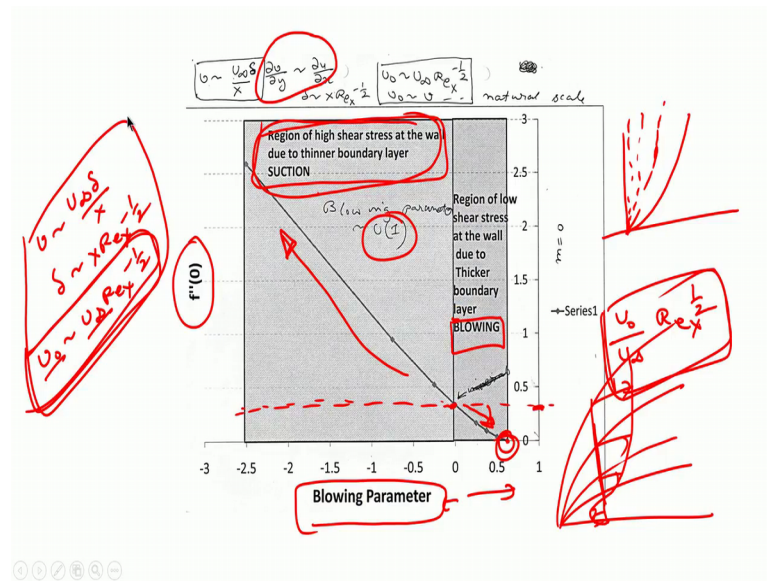 υ ~ U∞δ/x
∂υ/∂y ~ ∂u/∂x
δ ~ x Re_x^(-1/2)
υ₀ ~ U∞ Re_x^(-1/2)
υ₀ ~ υ --
natural scale
Region of high shear stress at the wall
due to thinner boundary layer
SUCTION
Blowing parameter
~ O(1)
Region of low
shear stress
at the wall
due to
Thicker
boundary
layer
BLOWING
3
2.5
2
1.5
1
0.5
0
m = 0
Series1
f''(0)
υ ~ U∞δ/x
δ ~ x Re_x^(-1/2)
υ₀ ~ U∞ Re_x^(-1/2)
υ₀/U∞ Re_x^(1/2)
-3 -2.5 -2 -1.5 -1 -0.5 0 0.5 1
Blowing Parameter